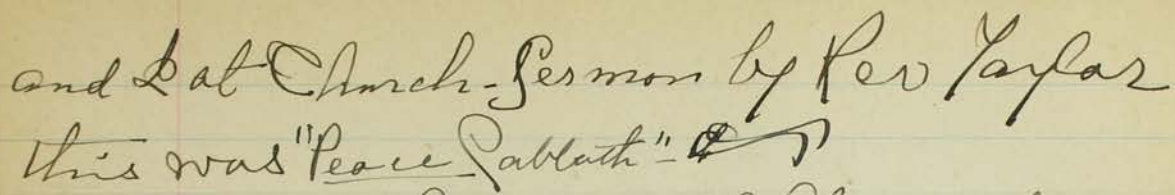 and I at Church - Sermon by Rev Taylor
this was "Peace Sabbath" -